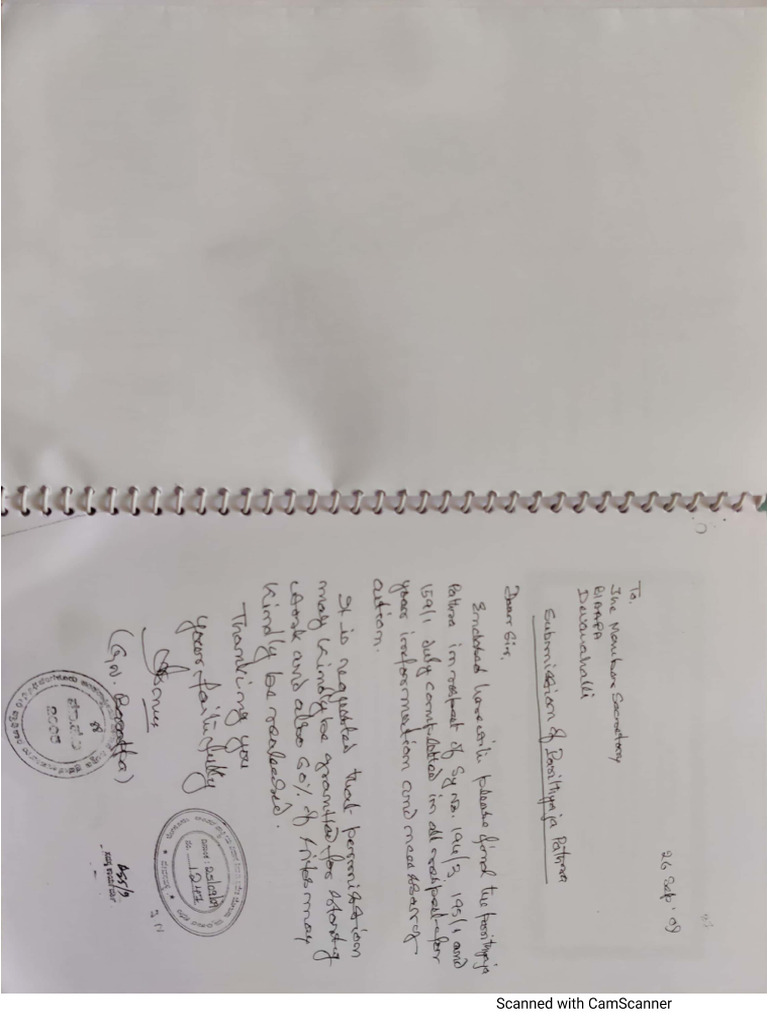 26 Sep' 09
To,
The Member Secretary
BIAAPA
Devanahalli
Submission of Parithyaja Pathra
Dear Sir,
Enclosed herewith please find the Parithyaja
Pathra in respect of Sy No. 194/3, 195/1 and
159/1 duly completed in all respect for
your information and necessary
action.
It is requested that permission
may kindly be granted for starting
work and also 60% of sites may
kindly be released.
Thanking you
Yours faithfully
(G.N.
2009
1247
Scanned with CamScanner